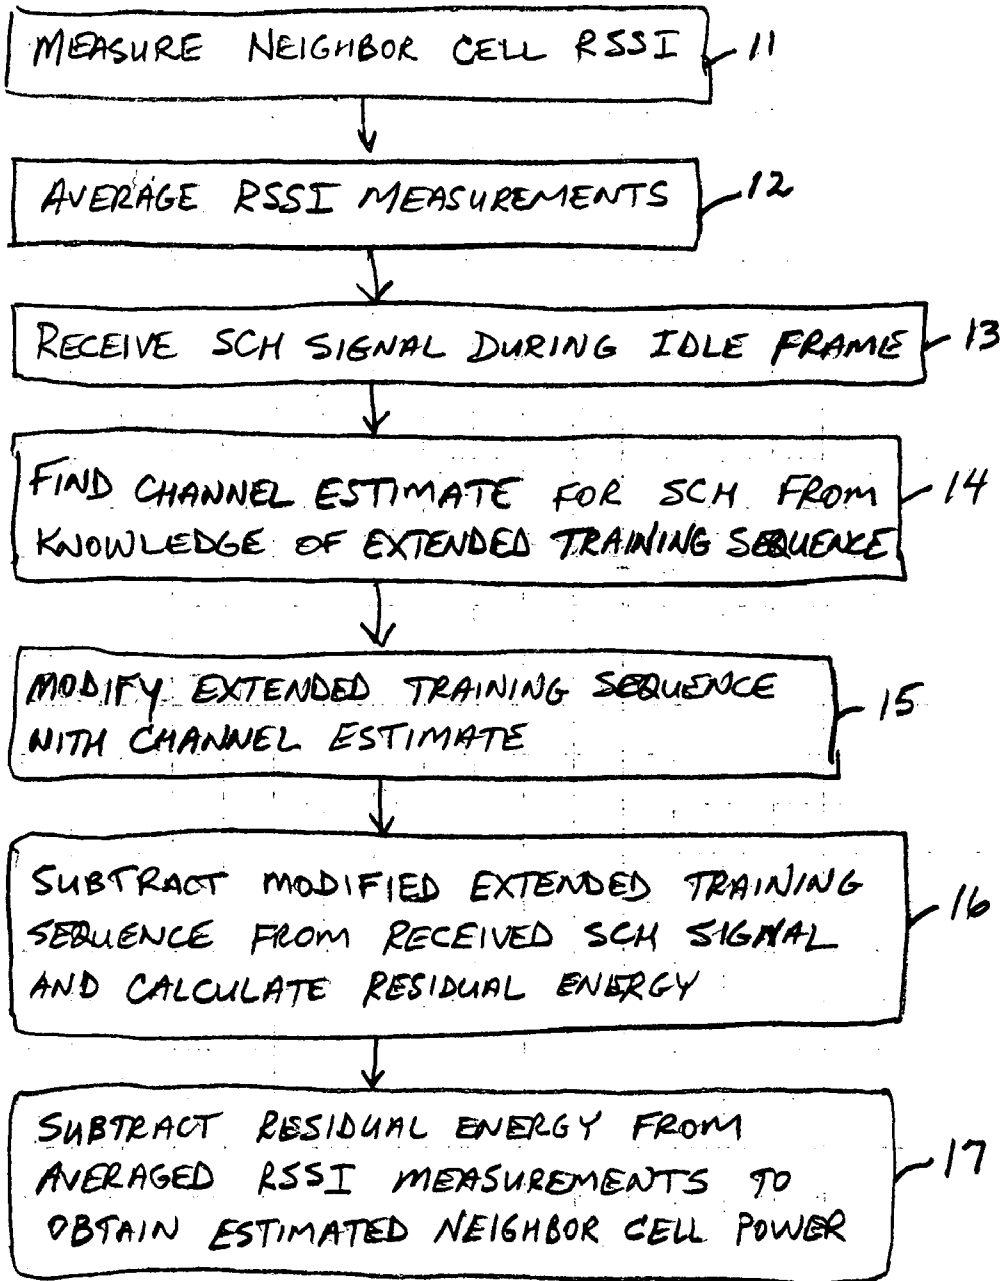 MEASURE NEIGHBOR CELL RSSI 11
AVERAGE RSSI MEASUREMENTS 12
RECEIVE SCH SIGNAL DURING IDLE FRAME 13
FIND CHANNEL ESTIMATE FOR SCH FROM 14
KNOWLEDGE OF EXTENDED TRAINING SEQUENCE
MODIFY EXTENDED TRAINING SEQUENCE 15
WITH CHANNEL ESTIMATE
SUBTRACT MODIFIED EXTENDED TRAINING
SEQUENCE FROM RECEIVED SCH SIGNAL 16
AND CALCULATE RESIDUAL ENERGY
SUBTRACT RESIDUAL ENERGY FROM
AVERAGED RSSI MEASUREMENTS TO 17
OBTAIN ESTIMATED NEIGHBOR CELL POWER